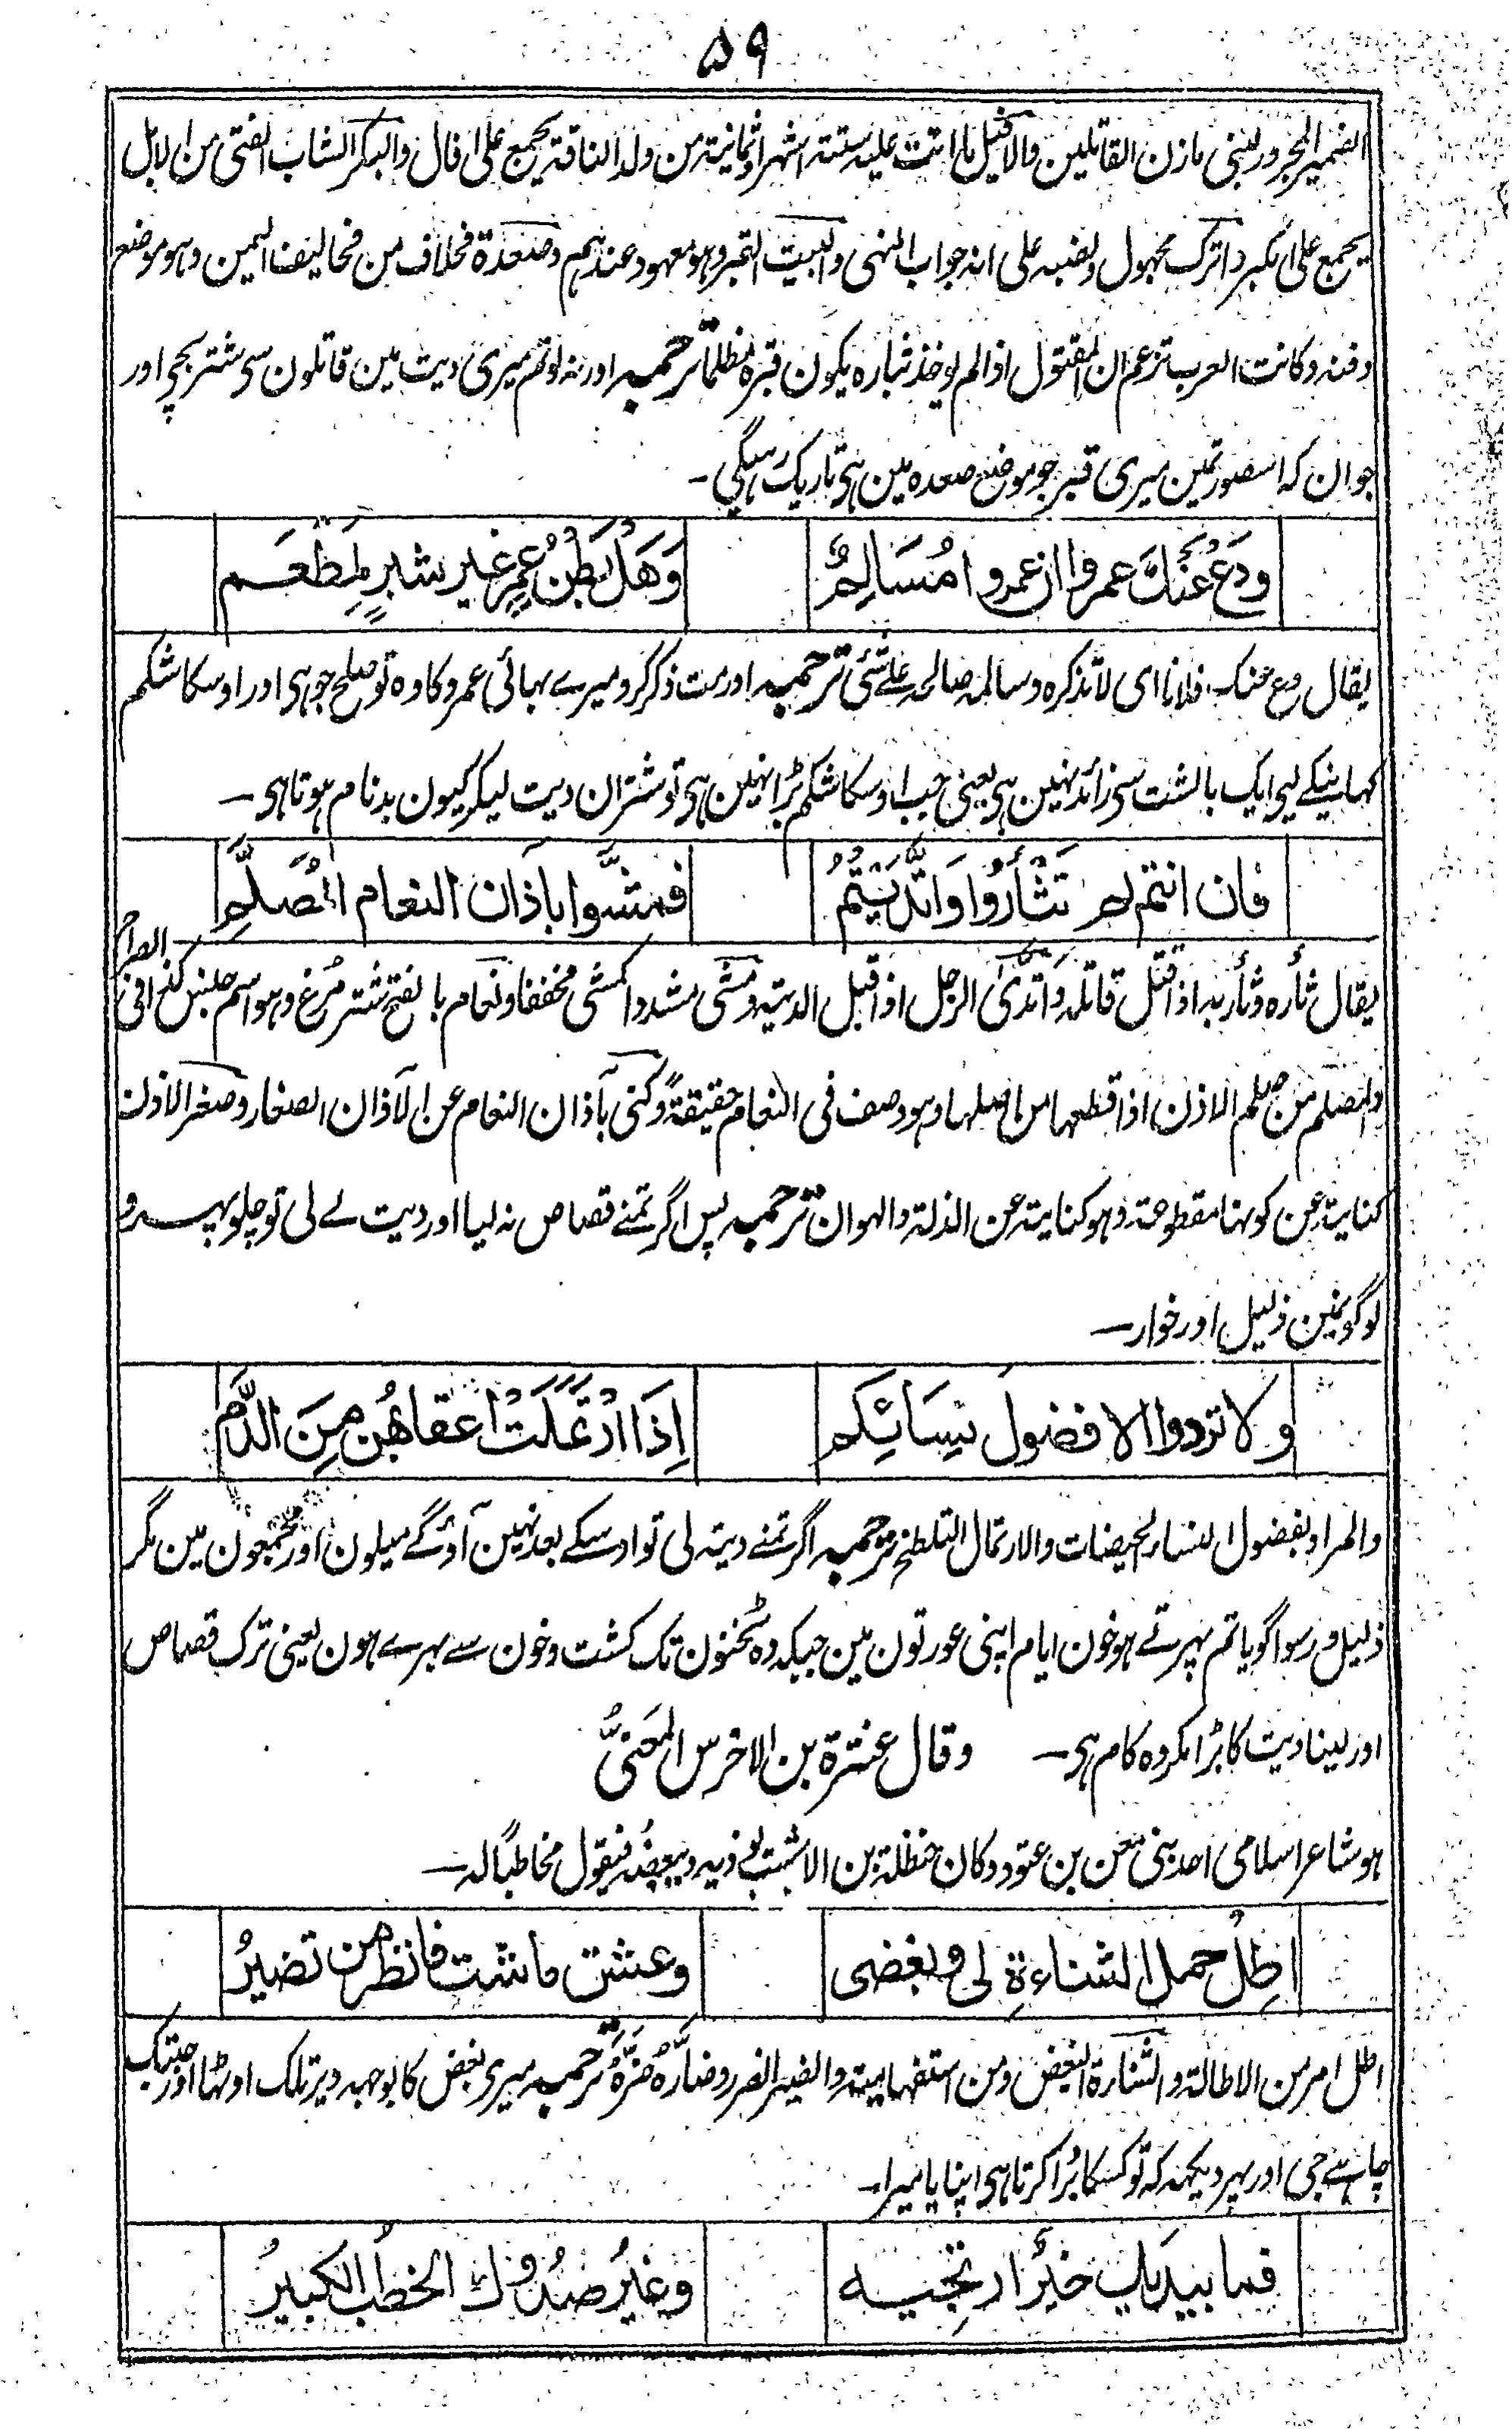 ۵۹
الضمیر المجرور لبنی مازن القاتلین والافیل ما اتت علیہ ستۃ اشہر او ثمانیۃ من ولد الناقۃ یجمع علی افال والبکر الشاب الفتی من الابل
یجمع علی ابکر واترک مجہول ونصبہ علی انہ جواب النہی والبیت القبر وہو معہود عندہم وصعدۃ مخلاف من مخالیف الیمن وہو موضع
دفنہ وکانت العرب تزعم ان المقتول اذا لم یوخذ بثارہ یکون قبرہ مظلما ترجمہ اور نہ لو تم میری دیت مین قاتلون سی شتر بچی اور
جوان کہ اسصورتمین میری قبر جو موضع صعدہ مین ہی تاریک رہیگی ۔
وَدَعْ عَنْكَ عمرًا ان عمروا مُسَالِمٌ
وَهَلْ بَطْنُ عمرٍو غیر شبرٍ لِمَطْعَم
یقال دع عنک فلانا ای لا تذکرہ وسالمہ صالحہ علے شئی ترجمہ اور مت ذکر کرو میرے بہائی عمرو کا وہ تو صلح جو ہی اور اوسکا شکم
کہانیکے لیی ایک بالشت سی زائد نہین ہی یعنی جب اوسکا شکم بڑا نہین ہی تو شتران دیت لیکر کیون بدنام ہوتا ہی ۔
فان انتم لم تَثْأَرُوا وَاتَّدَیْتُمُ
فمشّوا باٰذان النعام المُصَلَّمِ
یقال ثأرہ وثأر بہ اذا قتل قاتلہ واتّدیٰ الرجل اذا قبل الدیۃ ومشّی مشددا کمشی مخففا ونعام بالفتح شتر مرغ وہو اسم جنس کذا فی
الصراح
والمصلم من صلم الاذن اذا قطعہا من اصلہا وہو وصف فی النعام حقیقۃً وکنی بآذان النعام عن الآذان الصغار وصغر الاذن
کنایۃ عن کونہا مقطوعۃ وہو کنایۃ عن الذلۃ والہوان ترجمہ پس اگر تمنے قصاص نہ لیا اور دیت لے لی تو چلو پہرو
لوگونمین ذلیل اور خوار ۔
ولا تردوا الا فضولَ نِسَائِكم
اِذَا ارْتَمَلَتْ اعقابُهُن مِنَ الدَّمِ
والمراد بفضول النساء الحیضات والارتمال التلطخ ترجمہ اگر تمنے دیۃ لی تو اوسکے بعد نہین آؤگے میلون اور مجمعون مین مگر
ذلیل ورسوا گویا تم پہرتے ہو خون ایام اپنی عورتون مین جبکہ وہ ٹخنون تک کشت وخون سے بہرے ہون یعنی ترک قصاص
اور لینا دیت کا بڑا مکروہ کام ہی ۔ وقال عنترۃ بن الاخرس المَعَنیُّ
ہو شاعر اسلامی احد بنی معن بن عتود وکان حنظلۃ بن الاشہب یوذیہ ویبغضہ فیقول مخاطبًا لہ ۔
اطِلْ حملَ الشناءةِ لی و بغضی
وعش ماشئت فانظر من تضیرُ
اطل امر من الاطالۃ والشناءۃ البغض ومن استفہامیۃ والضیر الضرر وضارّہ ضرّہ ترجمہ میری بغض کا بوجہہ دیر تلک اوٹہا اور جبتک
چاہے جی اور پہر دیکہہ کہ تو کسکا بُرا کرتا ہی اپنا یا میرا ۔
فما بیدیك خیرٌ ارتجیه
وغیرُ صدُودِكَ الخطبُ الکبیرُ